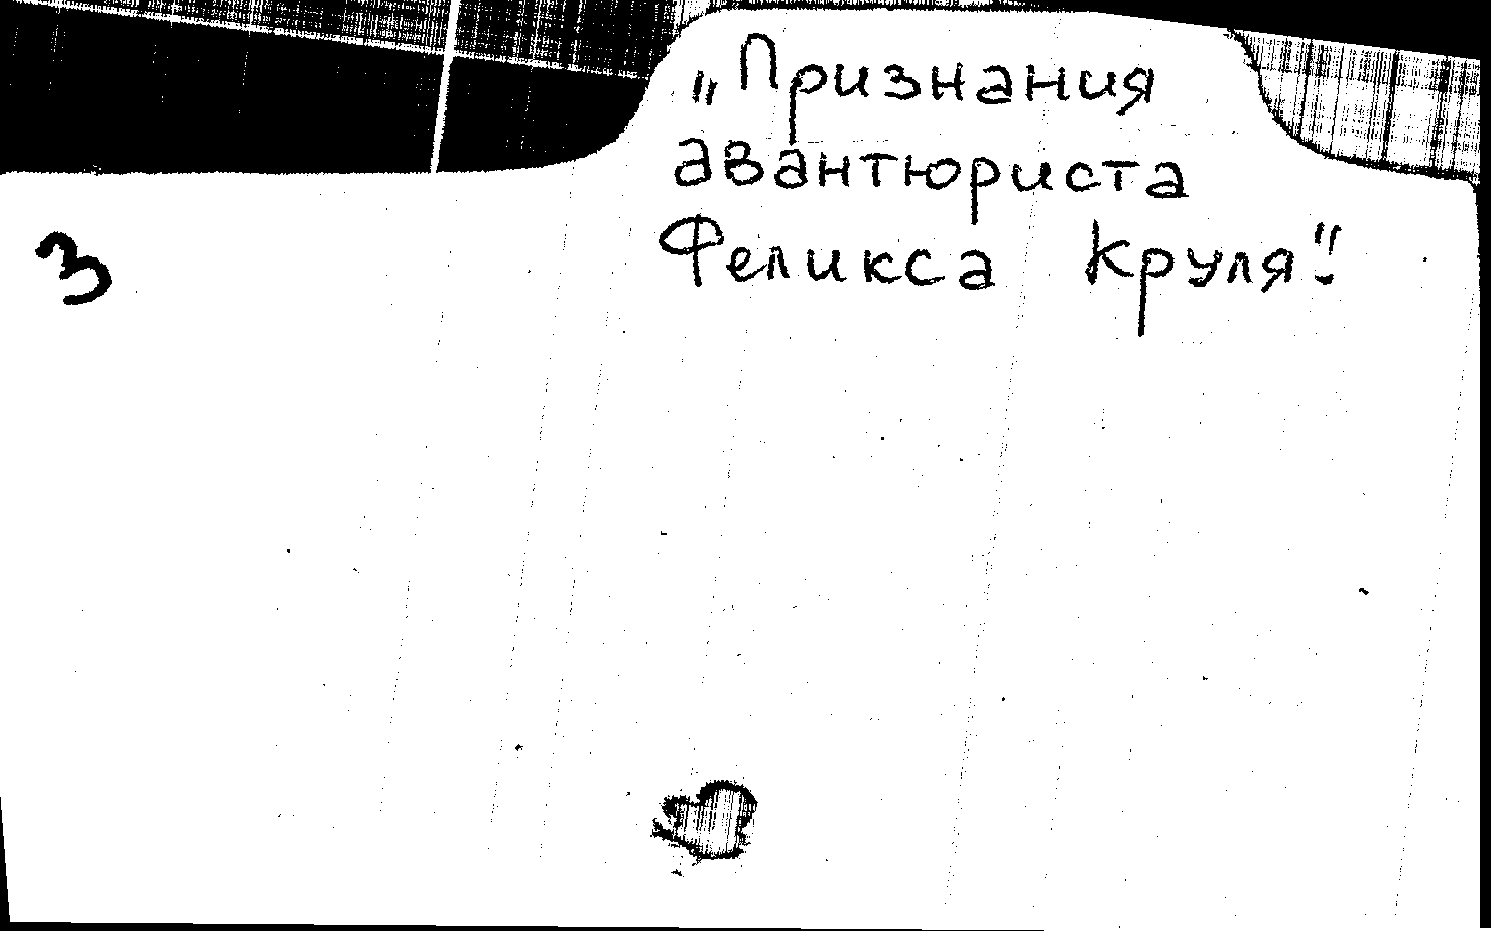 „Признания
авантюриста
Феликса Круля".
3